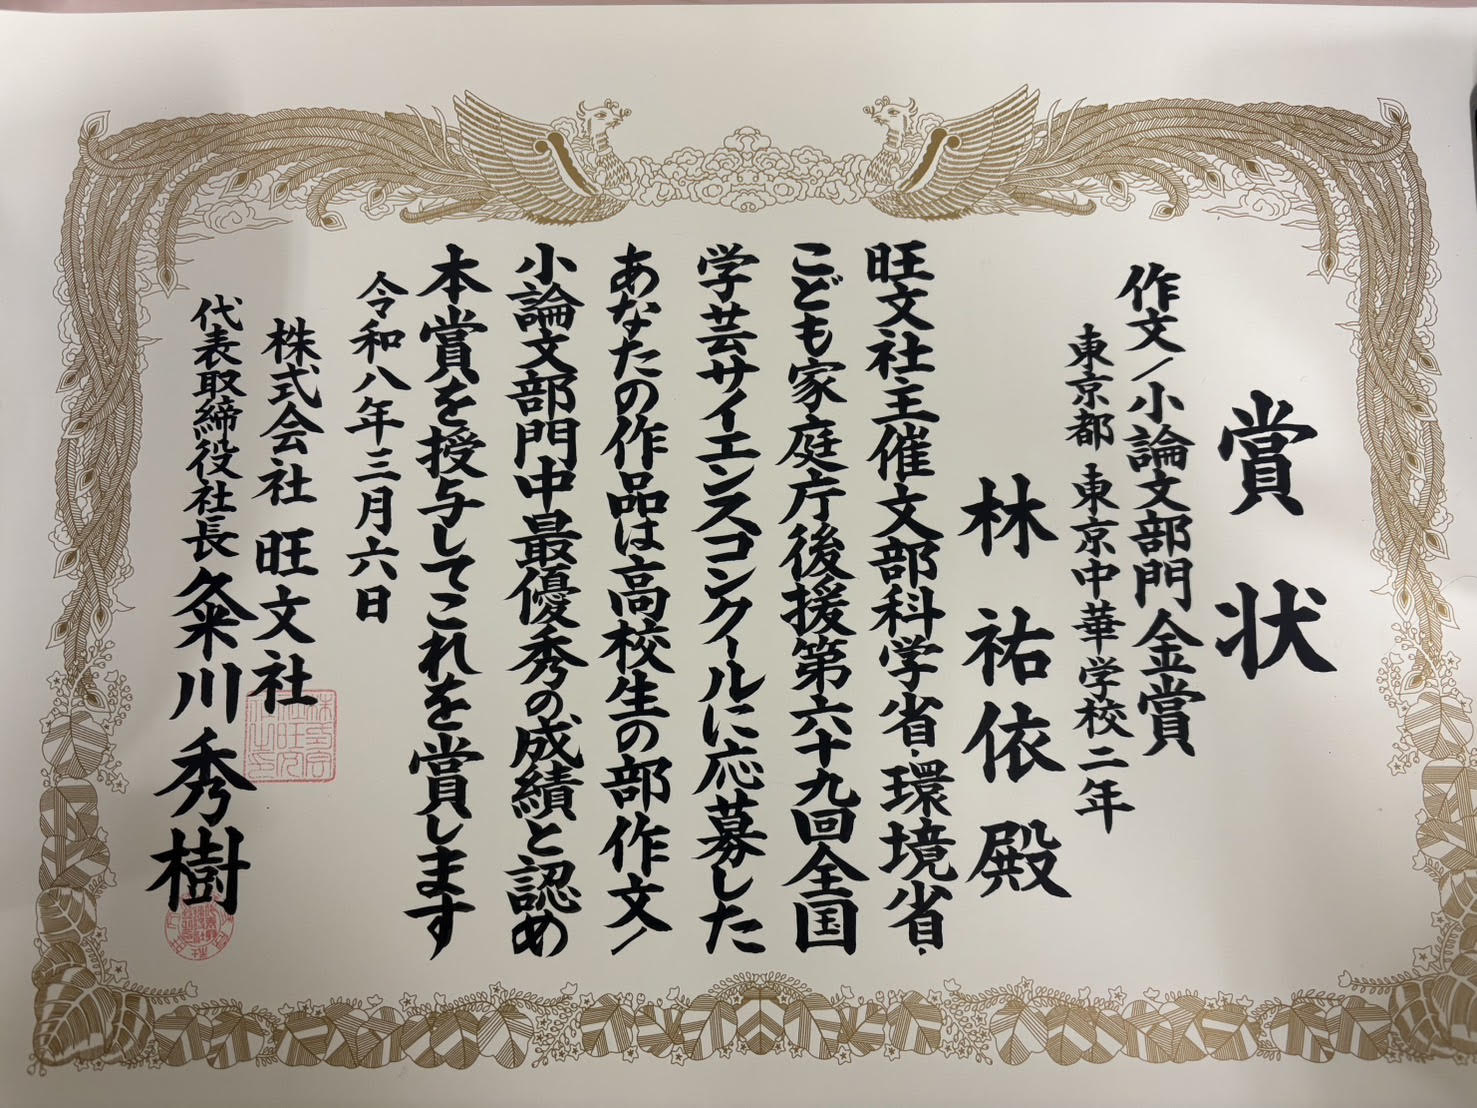 賞状
作文/小論文部門金賞
東京都 東京中華学校二年
林祐依殿
旺文社主催文部科学省・環境省・
こども家庭庁後援第六十九回全国
学芸サイエンスコンクールに応募した
あなたの作品は高校生の部作文/
小論文部門中最優秀の成績と認め
本賞を授与してこれを賞します
令和八年三月六日
株式会社 旺文社
代表取締役社長 粂川秀樹